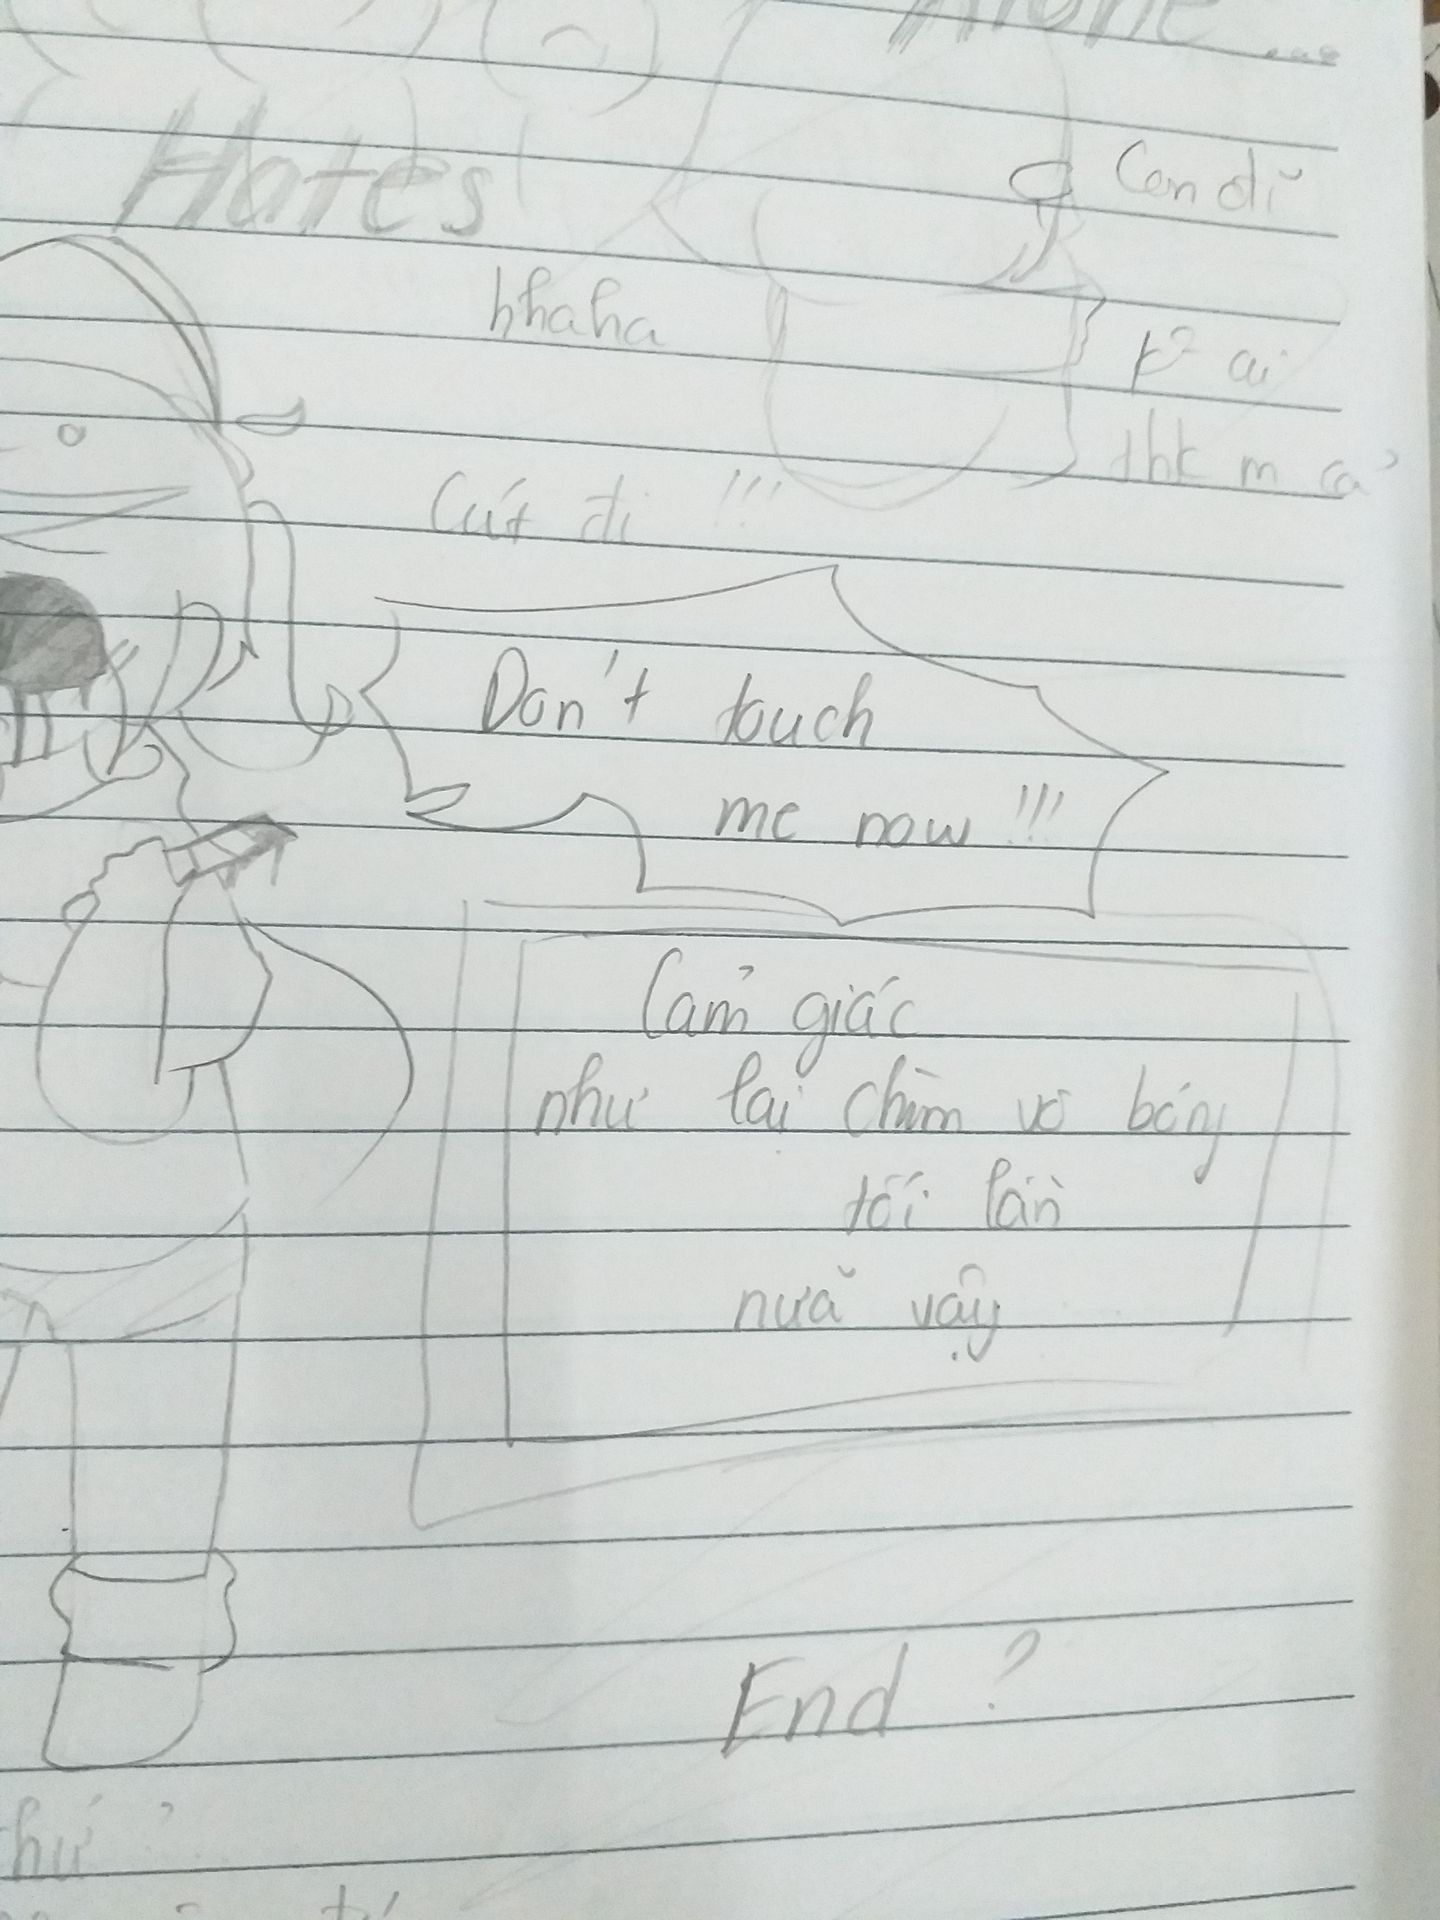 Alone...
Hates
Con đĩ
hhaha
k² ai
thk m cả
Cút đi !!!
Don't touch
me now !!!
Cảm giác
như lại chìm vô bóng
tối lần
nữa vậy
End ?